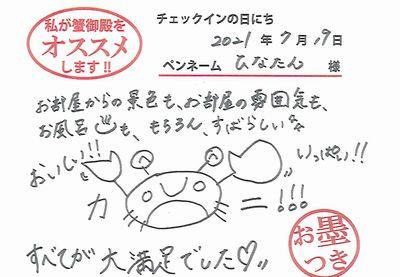 私が蟹御殿を
オススメ
します!!
チェックインの日にち
2021年7月19日
ペンネーム ひなたん 様
お部屋からの景色も、お部屋の雰囲気も、
お風呂♨も、もちろん、すばらしい
おいしい!!
いっぱい!!
カニ!!!
すべてが大満足でした♡〃
お墨
つき